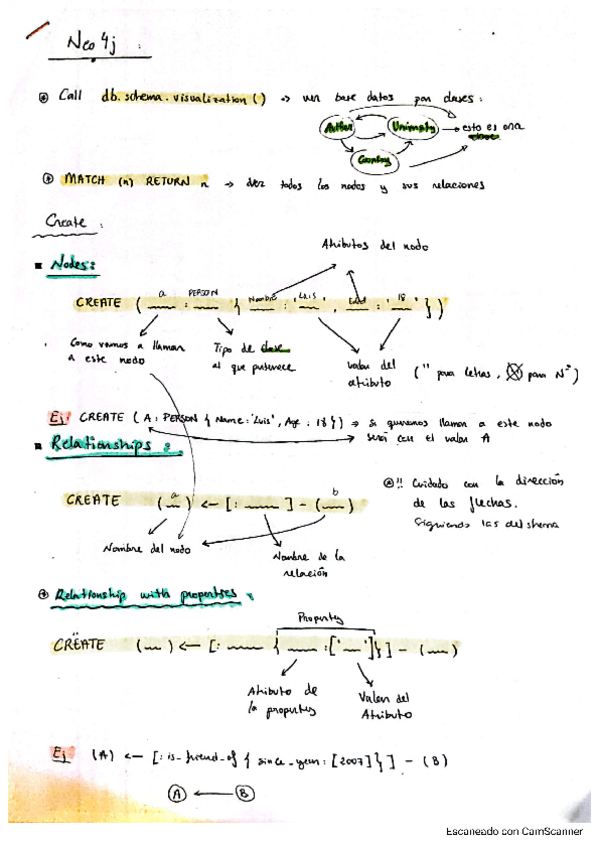 Neo 4j :
Call db.schema.visualization() → ver base datos por clases:
Author University → esto es una clase
Country
MATCH (n) RETURN n → dar todos los nodos y sus relaciones
Create :
Atributos del nodo
Nodes:
a PERSON Nombre 'Luis' Edad '18'
CREATE ( __ : __ { __ : __ , __ : __ })
Como vamos a llamar
a este nodo
Tipo de clase
al que pertenece
Valor del
atributo
('' para letras, para Nº)
Ej: CREATE (A: PERSON { Name: 'Luis', Age : 18 }) → si queremos llamar a este nodo
será con el valor A
Relationships :
a b
CREATE ( __ ) ← [: __ ] - ( __ )
!! Cuidado con la dirección
de las flechas.
Siguiendo las del shema
Nombre del nodo
Nombre de la
relación
Relationship with properties :
Property
CREATE ( __ ) ← [: __ { __ : [' __ ']}] - ( __ )
Atributo de
la property
Valor del
Atributo
Ej (A) ← [: is_friend_of { since_year : [2007]}] - (B)
A ← B
Escaneado con CamScanner